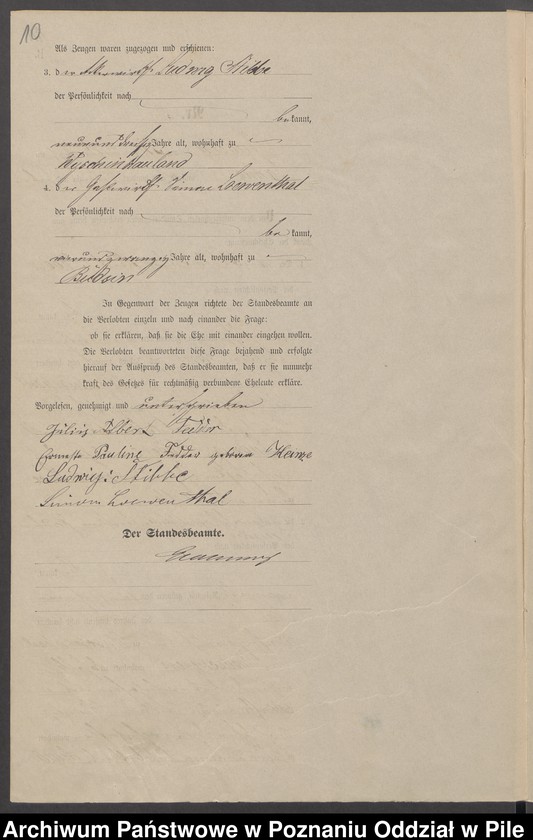 10
Als Zeugen waren zugezogen und erschienen:
3. der Ackerwirth Ludwig Stibbe
der Persönlichkeit nach
bekannt,
Jahre alt, wohnhaft zu
4. der Gastwirth Simon Loewenthal
der Persönlichkeit nach
bekannt,
vierundzwanzig Jahre alt, wohnhaft zu
Budsin
In Gegenwart der Zeugen richtete der Standesbeamte an
die Verlobten einzeln und nach einander die Frage:
ob sie erklären, daß sie die Ehe mit einander eingehen wollen.
Die Verlobten beantworteten diese Frage bejahend und erfolgte
hierauf der Ausspruch des Standesbeamten, daß er sie nunmehr
kraft des Gesetzes für rechtmäßig verbundene Eheleute erkläre.
Vorgelesen, genehmigt und unterschrieben
Julius Albert
Ernestine Pauline geborene Heinze
Ludwig Stibbe
Simon Loewenthal
Der Standesbeamte.
Archiwum Państwowe w Poznaniu Oddział w Pile